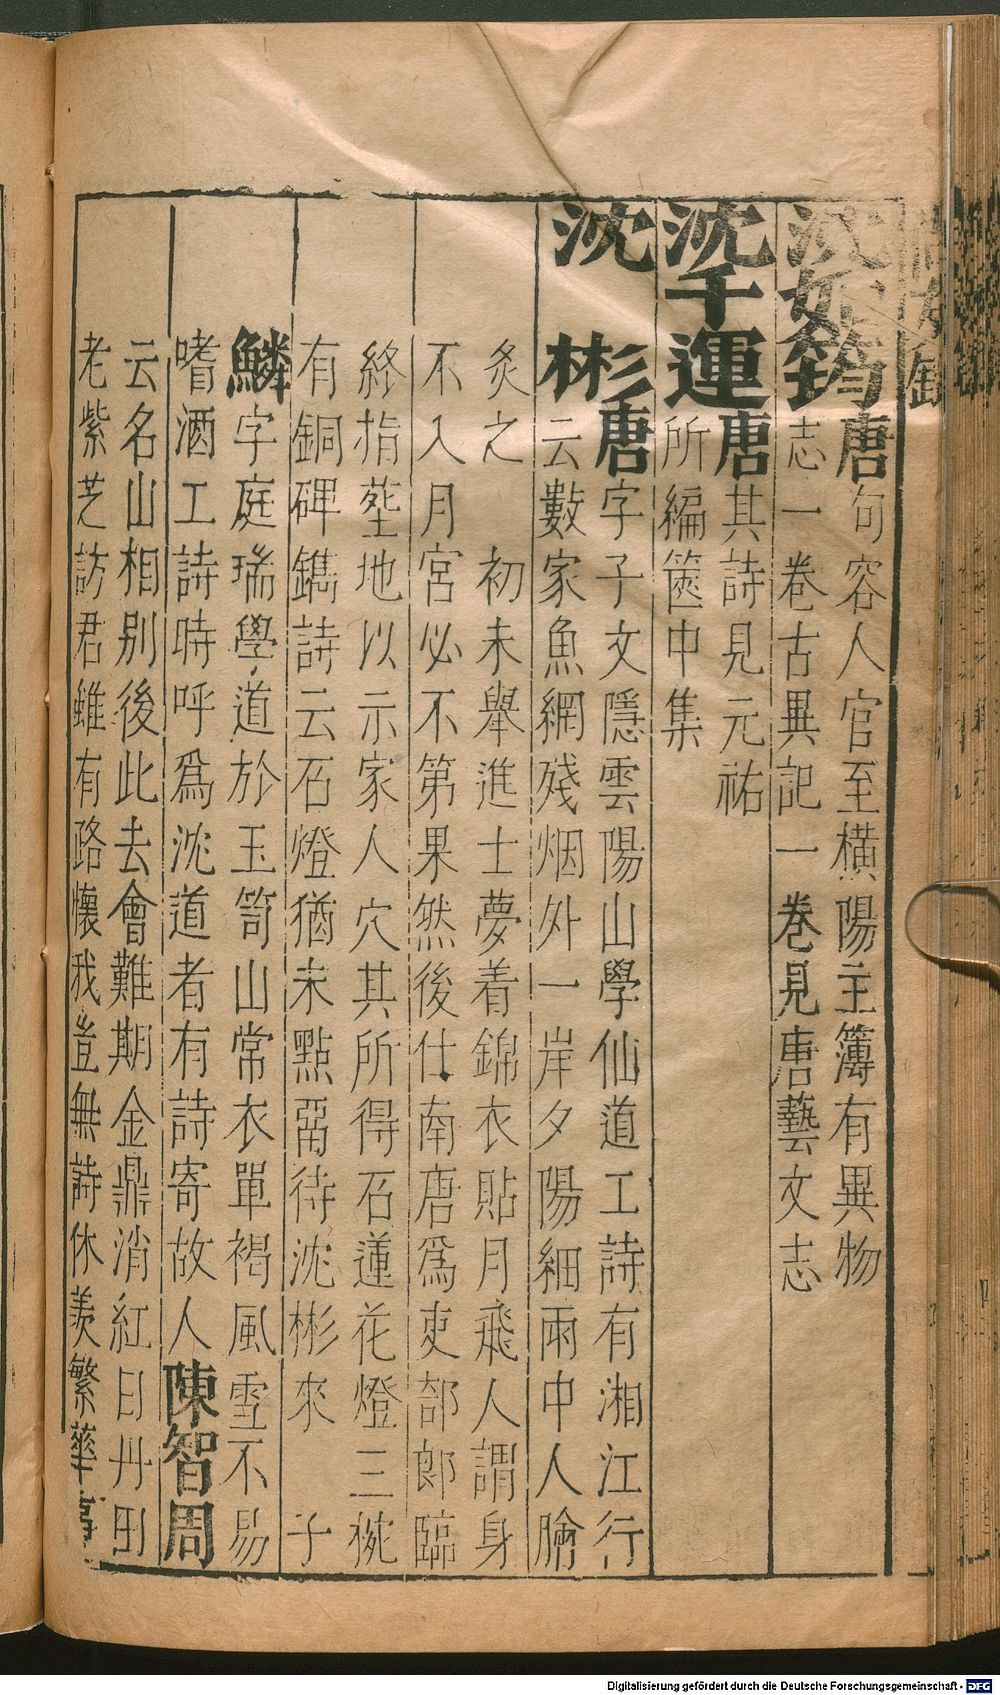 沈如筠唐句容人官至橫陽主簿有異物
志一卷古異記一卷見唐藝文志
沈千運唐其詩見元祐
所編篋中集
沈彬唐字子文隱雲陽山學仙道工詩有湘江行
云數家魚網殘烟外一岸夕陽細雨中人膾
炙之 初未舉進士夢着錦衣貼月飛人謂身
不入月宮必不第果然後仕南唐爲吏部郎臨
終指葬地以示家人穴其所得石蓮花燈三椀
有銅碑鐫詩云石燈猶未點留待沈彬來 子
鱗字庭瑞學道於玉笥山常衣單褐風雪不易
嗜酒工詩時呼爲沈道者有詩寄故人陳智周
云名山相別後此去會難期金鼎消紅日丹田
老紫芝訪君雖有路懷我豈無詩休羨繁華事
Digitalisierung gefördert durch die Deutsche Forschungsgemeinschaft - DFG